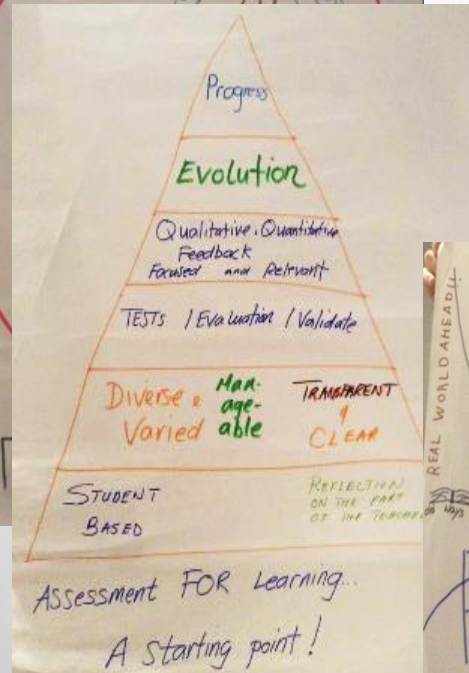 Progress
Evolution
Qualitative. Quantitative
Feedback
Focused and Relevant
TESTs / Evaluation / Validate
Diverse &
Varied
Man-
age-
able
TRANSPARENT
&
CLEAR
STUDENT
BASED
REFLECTION
ON THE PART
OF THE TEACHER
Assessment FOR Learning...
A Starting point!
REAL WORLD AHEAD!!